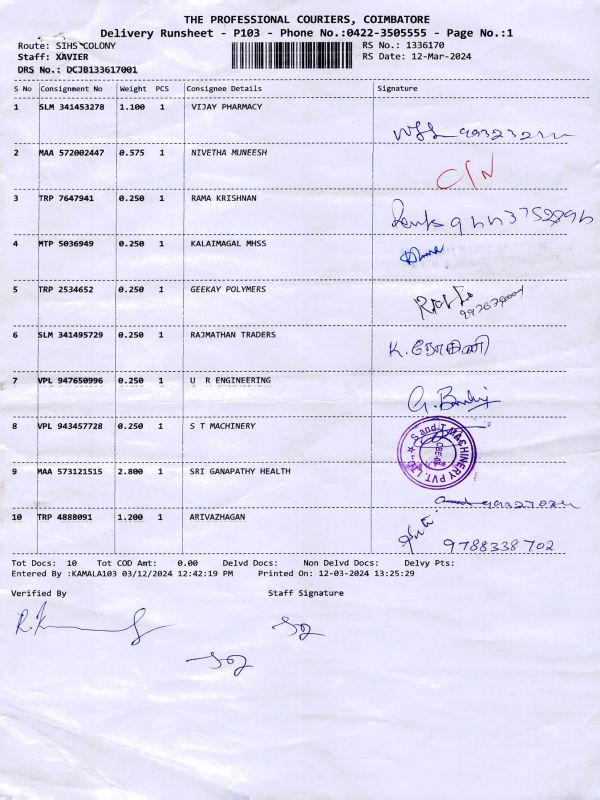 THE PROFESSIONAL COURIERS, COIMBATORE
Delivery Runsheet - P103 - Phone No.:0422-3505555 - Page No.:1
Route: SIHS COLONY RS No.: 1336170
Staff: XAVIER RS Date: 12-Mar-2024
DRS No.: DCJB133617001
S No Consignment No Weight PCS Consignee Details Signature
1 SLM 341453278 1.100 1 VIJAY PHARMACY
2 MAA 572002447 0.575 1 NIVETHA MUNEESH C/N
3 TRP 7647941 0.250 1 RAMA KRISHNAN
4 MTP 5036949 0.250 1 KALAIMAGAL MHSS
5 TRP 2534652 0.250 1 GEEKAY POLYMERS
6 SLM 341495729 0.250 1 RAJMATHAN TRADERS K.
7 VPL 947650996 0.250 1 U R ENGINEERING
8 VPL 943457728 0.250 1 S T MACHINERY
S and T MACHINERY PVT. LTD.
9 MAA 573121515 2.800 1 SRI GANAPATHY HEALTH
10 TRP 4888091 1.200 1 ARIVAZHAGAN
9788338702
Tot Docs: 10 Tot COD Amt: 0.00 Delvd Docs: Non Delvd Docs: Delvy Pts:
Entered By :KAMALA103 03/12/2024 12:42:19 PM Printed On: 12-03-2024 13:25:29
Verified By Staff Signature